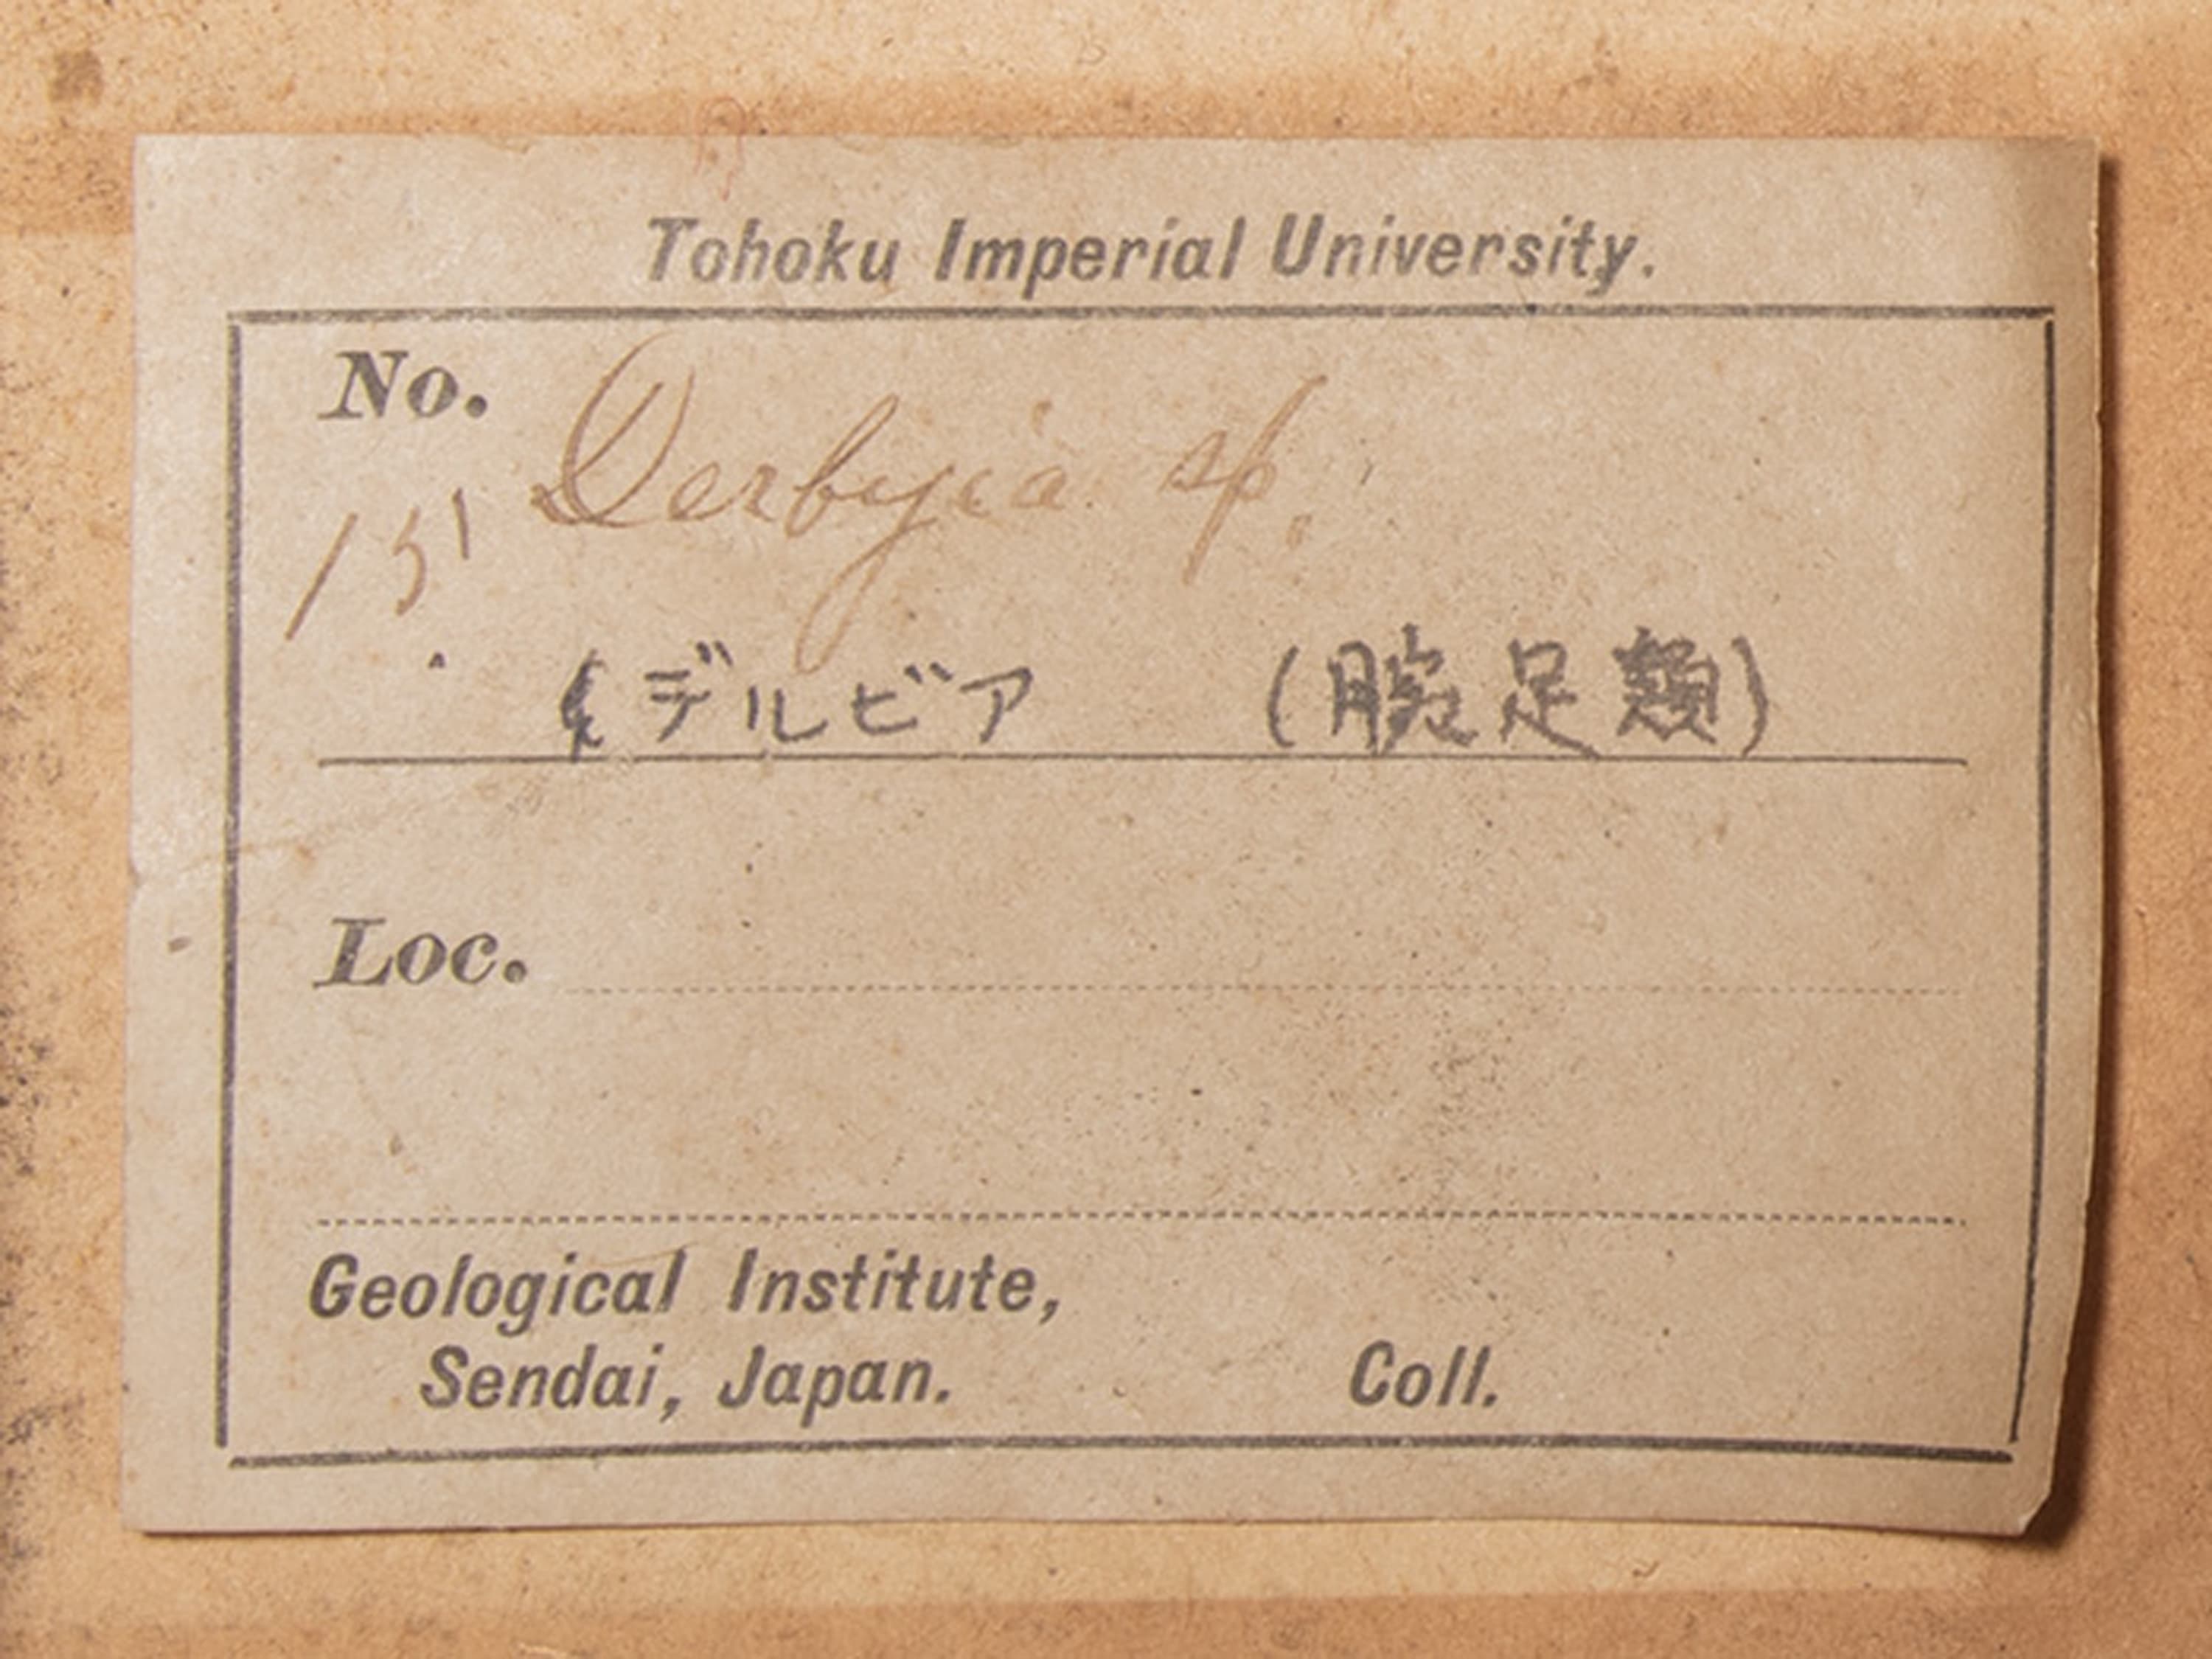 Tohoku Imperial University.
No. Derbyia sp.
15
デルビア (腕足類)
Loc.
Geological Institute,
Sendai, Japan. Coll.